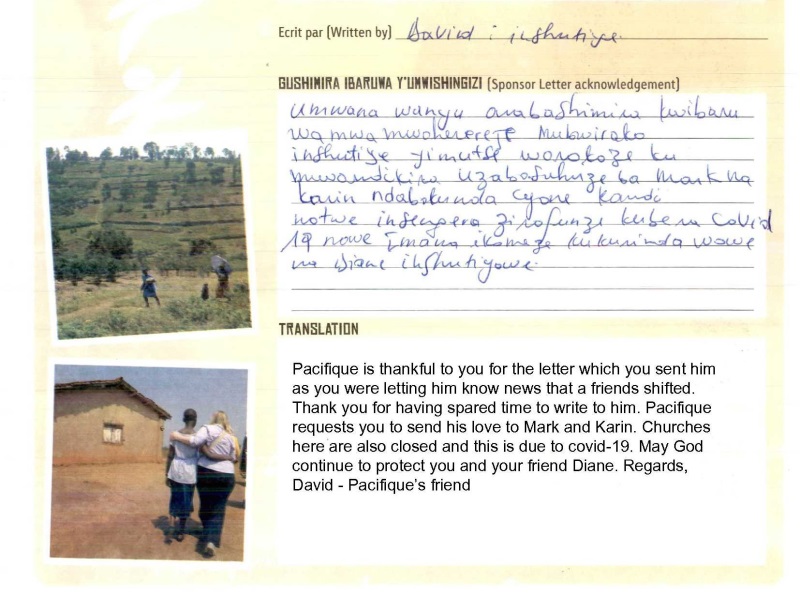 Ecrit par (Written by) David : inshutiye.
GUSHIMIRA IBARUWA Y'UMWISHINGIZI (Sponsor Letter acknowledgement)
Umwana wanyu arabashimira kwibaru
wa mwa mwoherereje Mubwirako
inshutiye yimutse warokoze ku
mwandikira uzabasuhuze ba Mark na
Karin ndabakunda cyane kandi
natwe insengero zirafunze kubera Covid
19 nawe Imana ikomeze kukurinda wowe
na Diane inshutiyawe.
TRANSLATION
Pacifique is thankful to you for the letter which you sent him
as you were letting him know news that a friends shifted.
Thank you for having spared time to write to him. Pacifique
requests you to send his love to Mark and Karin. Churches
here are also closed and this is due to covid-19. May God
continue to protect you and your friend Diane. Regards,
David - Pacifique's friend